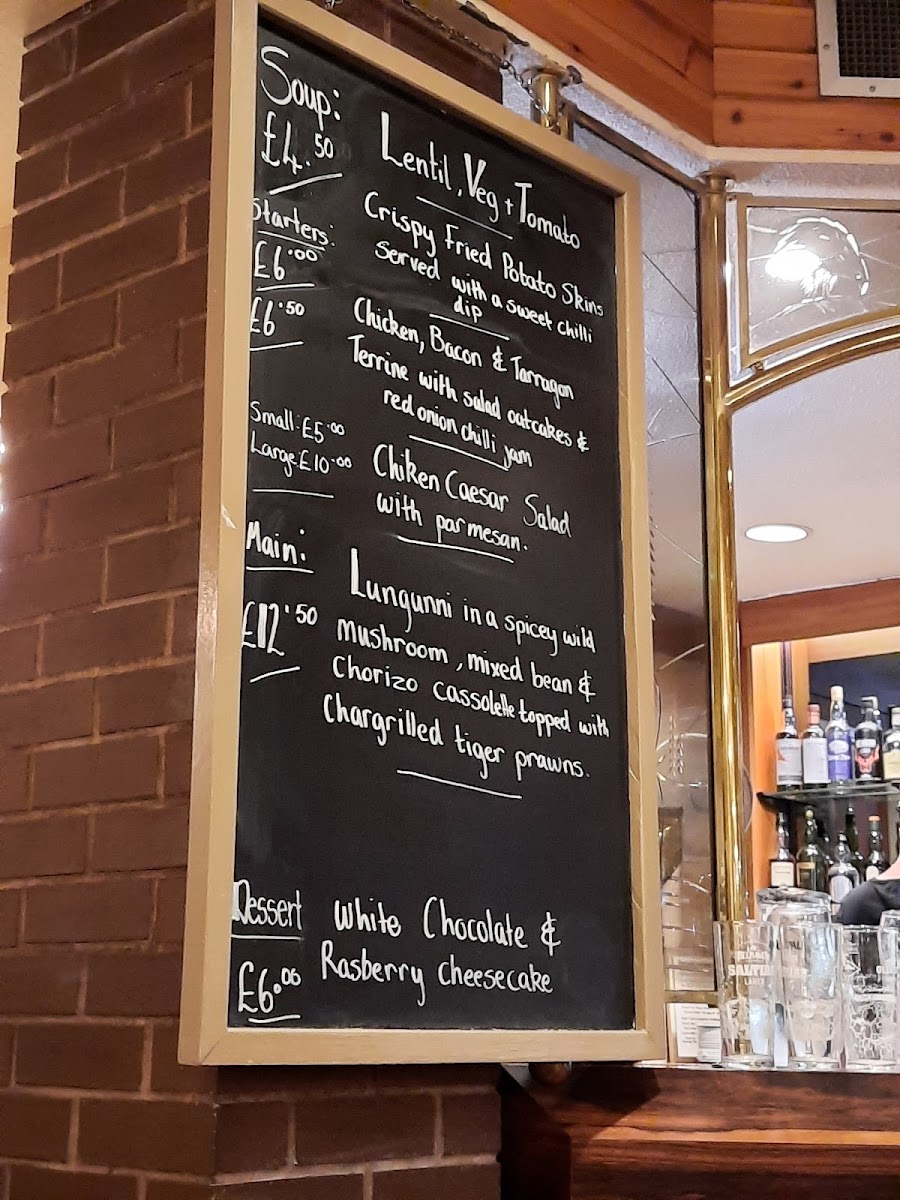 Soup:
£4.50
Lentil, Veg + Tomato
Starters:
£6.00
Crispy Fried Potato Skins
served with a sweet chilli
dip
£6.50
Chicken, Bacon & Tarragon
Terrine with salad oatcakes &
red onion chilli jam
Small: £5.00
Large £10.00
Chiken Caesar Salad
with parmesan.
Main:
£12.50
Lungunni in a spicey wild
mushroom, mixed bean &
Chorizo cassolette topped with
Chargrilled tiger prawns.
Dessert
£6.00
White Chocolate &
Rasberry cheesecake